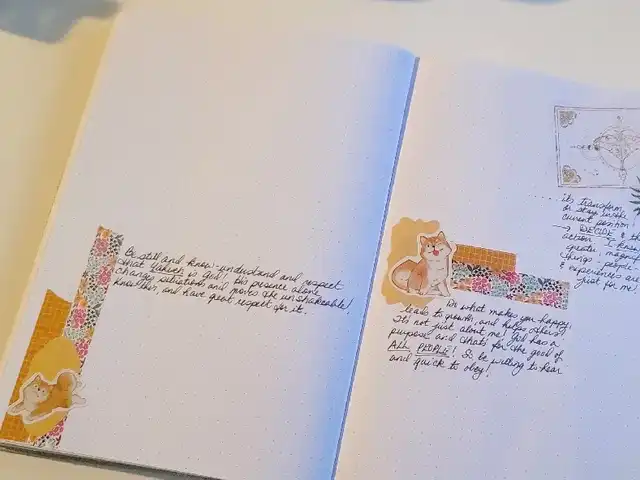 Be still and know, understand and respect
that Yahweh is God! His presence alone
changes situations and moves the unshakeable!
Know Him, and have great respect for it.
its transform
or stay inside
current position!
→ DECIDE & th
action! I know
greater, magnif
things, people
& experiences ar
just for me!
Do what makes you happy,
leads to growth and helps others!
It's not just about me! God has a
purpose and that's for the good of
ALL PEOPLE! So be willing to hear
and quick to obey!